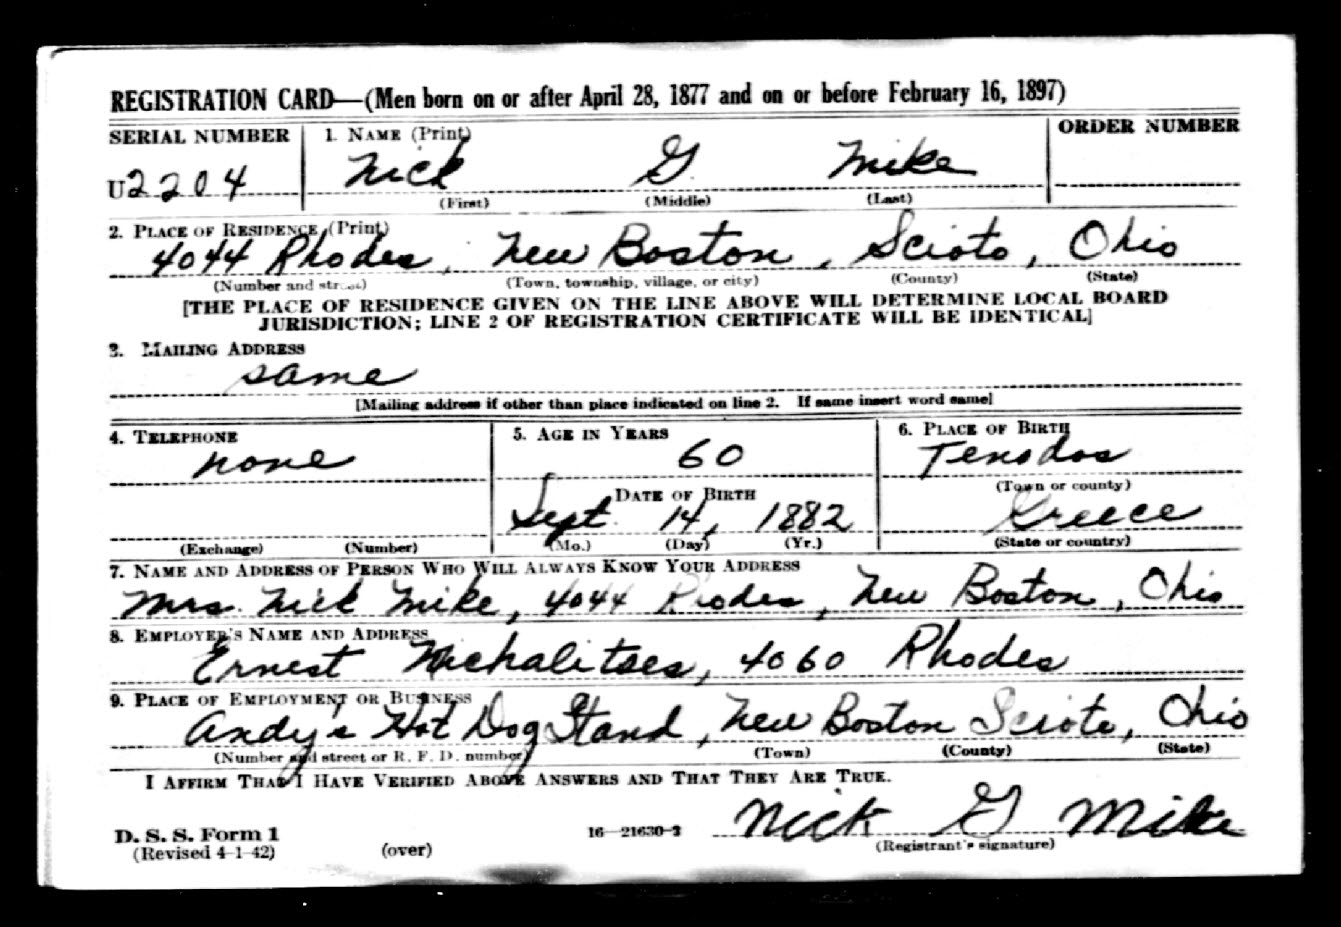 REGISTRATION CARD—(Men born on or after April 28, 1877 and on or before February 16, 1897)
SERIAL NUMBER 1. NAME (Print) ORDER NUMBER
U2204 Nick G. Mike
(First) (Middle) (Last)
2. PLACE OF RESIDENCE (Print)
4044 Rhodes, New Boston, Scioto, Ohio
(Number and street) (Town, township, village, or city) (County) (State)
[THE PLACE OF RESIDENCE GIVEN ON THE LINE ABOVE WILL DETERMINE LOCAL BOARD
JURISDICTION; LINE 2 OF REGISTRATION CERTIFICATE WILL BE IDENTICAL]
3. MAILING ADDRESS
same
[Mailing address if other than place indicated on line 2. If same insert word same]
4. TELEPHONE 5. AGE IN YEARS 6. PLACE OF BIRTH
none 60 Tenodos
(Town or county)
DATE OF BIRTH
Sept. 14, 1882 Greece
(Exchange) (Number) (Mo.) (Day) (Yr.) (State or country)
7. NAME AND ADDRESS OF PERSON WHO WILL ALWAYS KNOW YOUR ADDRESS
Mrs. Nick Mike, 4044 Rhodes, New Boston, Ohio
8. EMPLOYER'S NAME AND ADDRESS
Ernest Michalitses, 4060 Rhodes
9. PLACE OF EMPLOYMENT OR BUSINESS
Andy's Hot Dog Stand, New Boston Scioto, Ohio
(Number and street or R. F. D. number) (Town) (County) (State)
I AFFIRM THAT I HAVE VERIFIED ABOVE ANSWERS AND THAT THEY ARE TRUE.
Nick G Mike
D. S. S. Form 1 16—21630-2
(Revised 4-1-42) (over) (Registrant's signature)